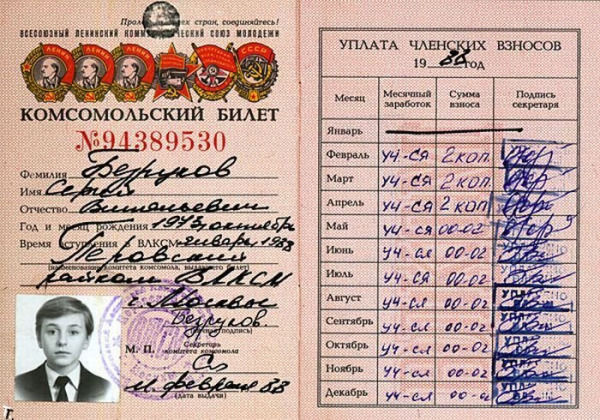 Пролетарии всех стран, соединяйтесь!
ВСЕСОЮЗНЫЙ ЛЕНИНСКИЙ КОММУНИСТИЧЕСКИЙ СОЮЗ МОЛОДЕЖИ
ЛЕНИН ЛЕНИН ЛЕНИН СССР
КОМСОМОЛЬСКИЙ БИЛЕТ
№94389530
Фамилия Безруков
Имя Сергей
Отчество Витальевич
Год и месяц рождения 1973, октябрь
Время вступления в ВЛКСМ январь 1988
Перовский
(наименование комитета комсомола, выдавшего билет)
райком ВЛКСМ
г. Москвы
Безруков.
(личная подпись)
М. П. Секретарь
комитета комсомола
11 февраля 88
(дата выдачи)
г.
УПЛАТА ЧЛЕНСКИХ ВЗНОСОВ
1988 год
Месяц Месячный заработок Сумма взноса Подпись секретаря
Январь
Февраль уч-ся 2 коп.
Март уч-ся 2 коп.
Апрель уч-ся 2 коп.
Май уч-ся 00-02
Июнь уч-ся 00-02
Июль уч-ся 00-02
Август уч-ся 00-02
Сентябрь уч-ся 00-02
Октябрь уч-ся 00-02
Ноябрь уч-ся 00-02
Декабрь уч-ся 00-02